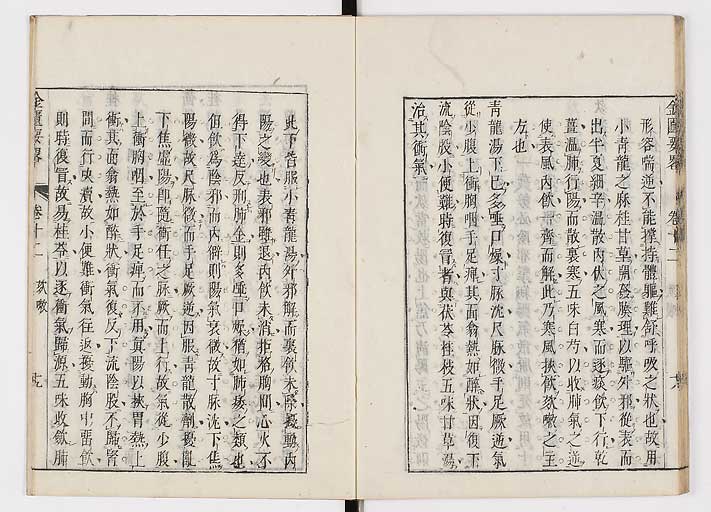 形容喘逆不能撑持體軀難舒呼吸之狀也故用
小青龍之麻桂甘草開發腠理以驅外邪從表而
出半夏細辛溫散內伏之風寒而逐痰飲下行乾
薑溫肺行陽而散裏寒五味白芍以收肺氣之逆
使表風內飲一齊而解此乃寒風挾飲欬嗽之主
方也
青龍湯下已多唾口燥寸脉沈尺脉微手足厥逆氣
從少腹上衝胸咽手足痺其面翕熱如醉狀因復下
流陰股小便難時復冒者與茯苓桂枝五味甘草湯
治其衝氣
此下皆服小青龍湯外邪解而裏飲未除擾動內
陽之變也表邪雖退內飲未消拒格胸間心火不
得下達反刑肺金則多唾口燥猶如肺痿之類也
但飲為陰邪而內僻則陽氣衰微故寸脉沈下焦
陽微故尺脉微而手足厥逆因服青龍散劑擾亂
下焦虛陽即隨衝任之脉厥而上行故氣從少腹
上衝胸咽至於手足痺而不用真陽以挾胃熱上
衝其面翕熱如醉狀衝氣復反下流陰股不歸腎
間而行決瀆故小便難衝氣往返擾動胸中留飲
則時復冒故易桂苓以逐衝氣歸源五味收斂肺
金匱要略
卷十二
欬嗽